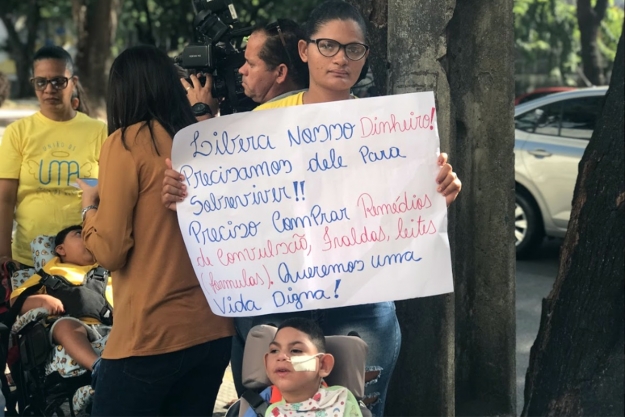 Libera Nosso Dinheiro!
Precisamos dele Para
Sobreviver!!
Preciso Comprar Remédios
de Convulsão, Fraldas, leites
(formulas). Queremos uma
Vida Digna!
UMA